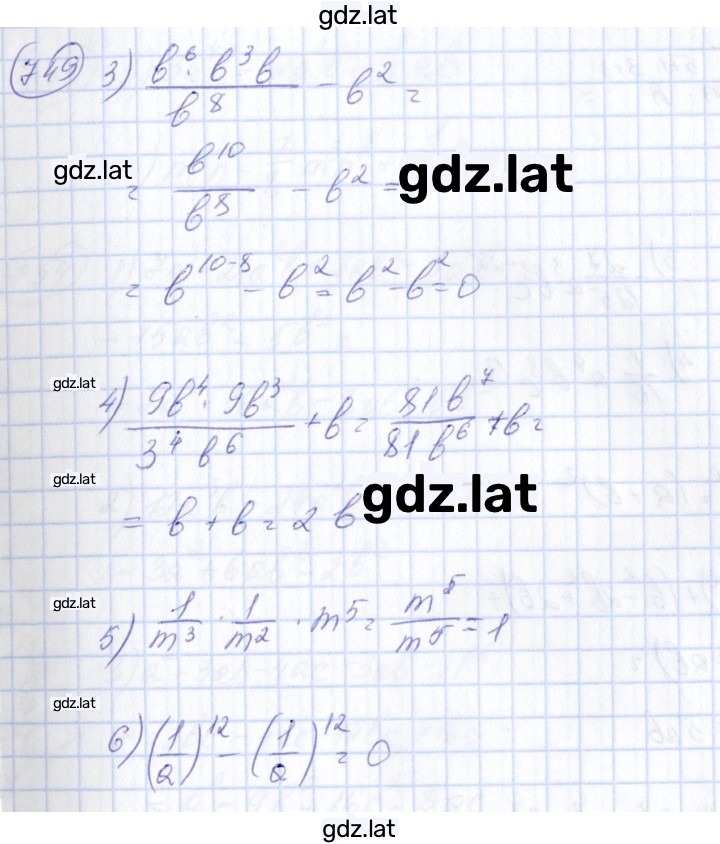 gdz.lat
749 3) (b⁶ · b³ b)/b⁸ - b² =
gdz.lat
= b¹⁰/b⁸ - b² =
gdz.lat
= b¹⁰⁻⁸ - b² = b² - b² = 0
gdz.lat
4) (9b⁴ · 9b³)/(3⁴ b⁶) + b = 81b⁷/81b⁶ + b =
gdz.lat
gdz.lat
= b + b = 2b
gdz.lat
5) 1/m³ · 1/m² · m⁵ = m⁵/m⁵ = 1
gdz.lat
6) (1/2)¹² - (1/2)¹² = 0
gdz.lat